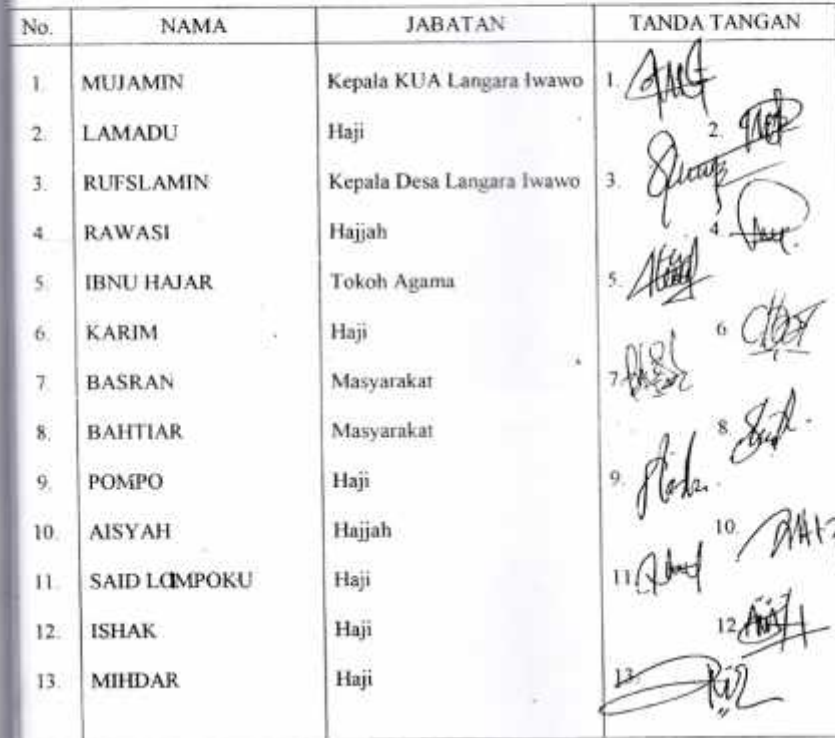 No. NAMA JABATAN TANDA TANGAN
1. MUJAMIN Kepala KUA Langara Iwawo 1.
2. LAMADU Haji 2.
3. RUFSLAMIN Kepala Desa Langara Iwawo 3.
4. RAWASI Hajjah 4.
5. IBNU HAJAR Tokoh Agama 5.
6. KARIM Haji 6.
7. BASRAN Masyarakat 7.
8. BAHTIAR Masyarakat 8.
9. POMPO Haji 9.
10. AISYAH Hajjah 10.
11. SAID LOMPOKU Haji 11.
12. ISHAK Haji 12.
13. MIHDAR Haji 13.